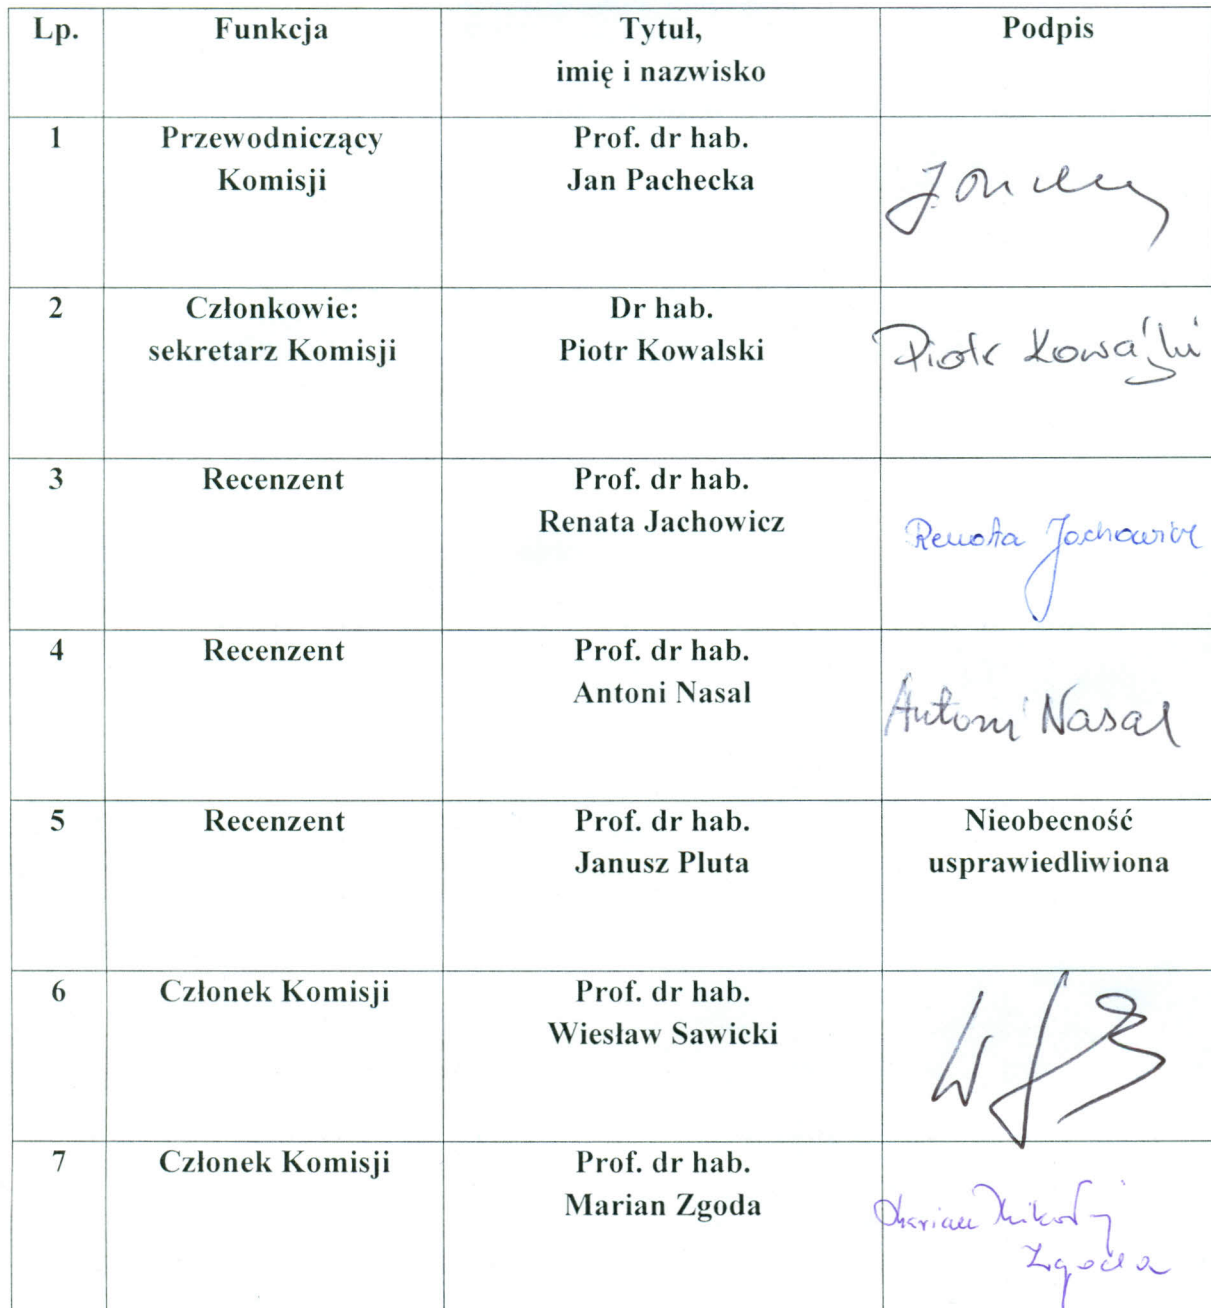 Lp. Funkcja Tytuł, Podpis
imię i nazwisko
1 Przewodniczący Prof. dr hab.
Komisji Jan Pachecka
2 Członkowie: Dr hab.
sekretarz Komisji Piotr Kowalski Piotr Kowalski
3 Recenzent Prof. dr hab.
Renata Jachowicz Renata Jachowicz
4 Recenzent Prof. dr hab.
Antoni Nasal Antoni Nasal
5 Recenzent Prof. dr hab. Nieobecność
Janusz Pluta usprawiedliwiona
6 Członek Komisji Prof. dr hab.
Wiesław Sawicki
7 Członek Komisji Prof. dr hab.
Marian Zgoda Marian Mikołaj
Zgoda